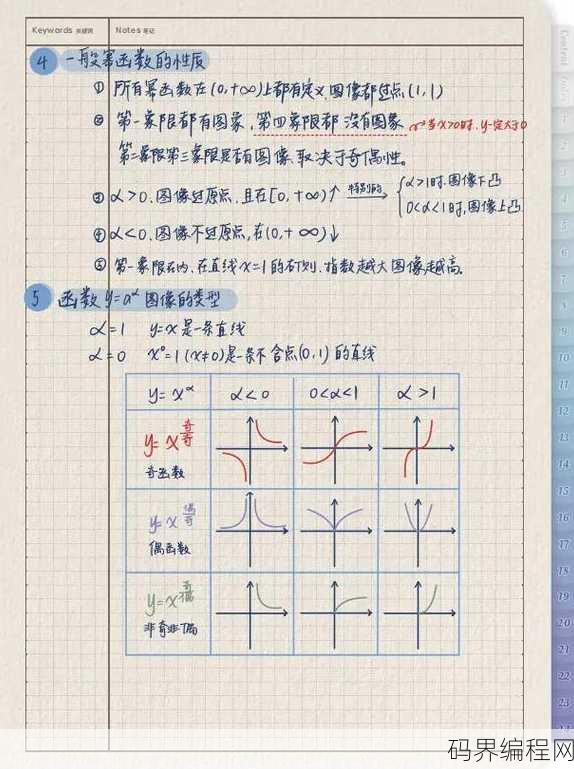 Keywords 关键词 Notes 笔记
4 一般幂函数的性质
① 所有幂函数在(0,+∞)上都有定义,图像都过点(1,1)
② 第一象限都有图象,第四象限都没有图象 当x>0时,y一定大于0
第二象限第三象限是否有图像,取决于奇偶性。
③ α>0,图像过原点,且在[0,+∞)↑ 特别的 α>1时,图像下凸
0<α<1时,图像上凸
④ α<0,图像不过原点,在(0,+∞)↓
⑤ 第一象限内,在直线x=1的右侧,指数越大图像越高。
5 函数y=a^α图像的类型
α=1 y=x是一条直线
α=0 x⁰=1(x≠0)是一条不含点(0,1)的直线
y=x^α α<0 0<α<1 α>1
y=x^奇/奇
奇函数
y=x^偶/奇
偶函数
y=x^奇/偶
非奇非偶
Content
Index
1
2
3
4
5
8
9
10
11
12
13
14
15
16
17
18
19
20
21
22
23
码界编程网